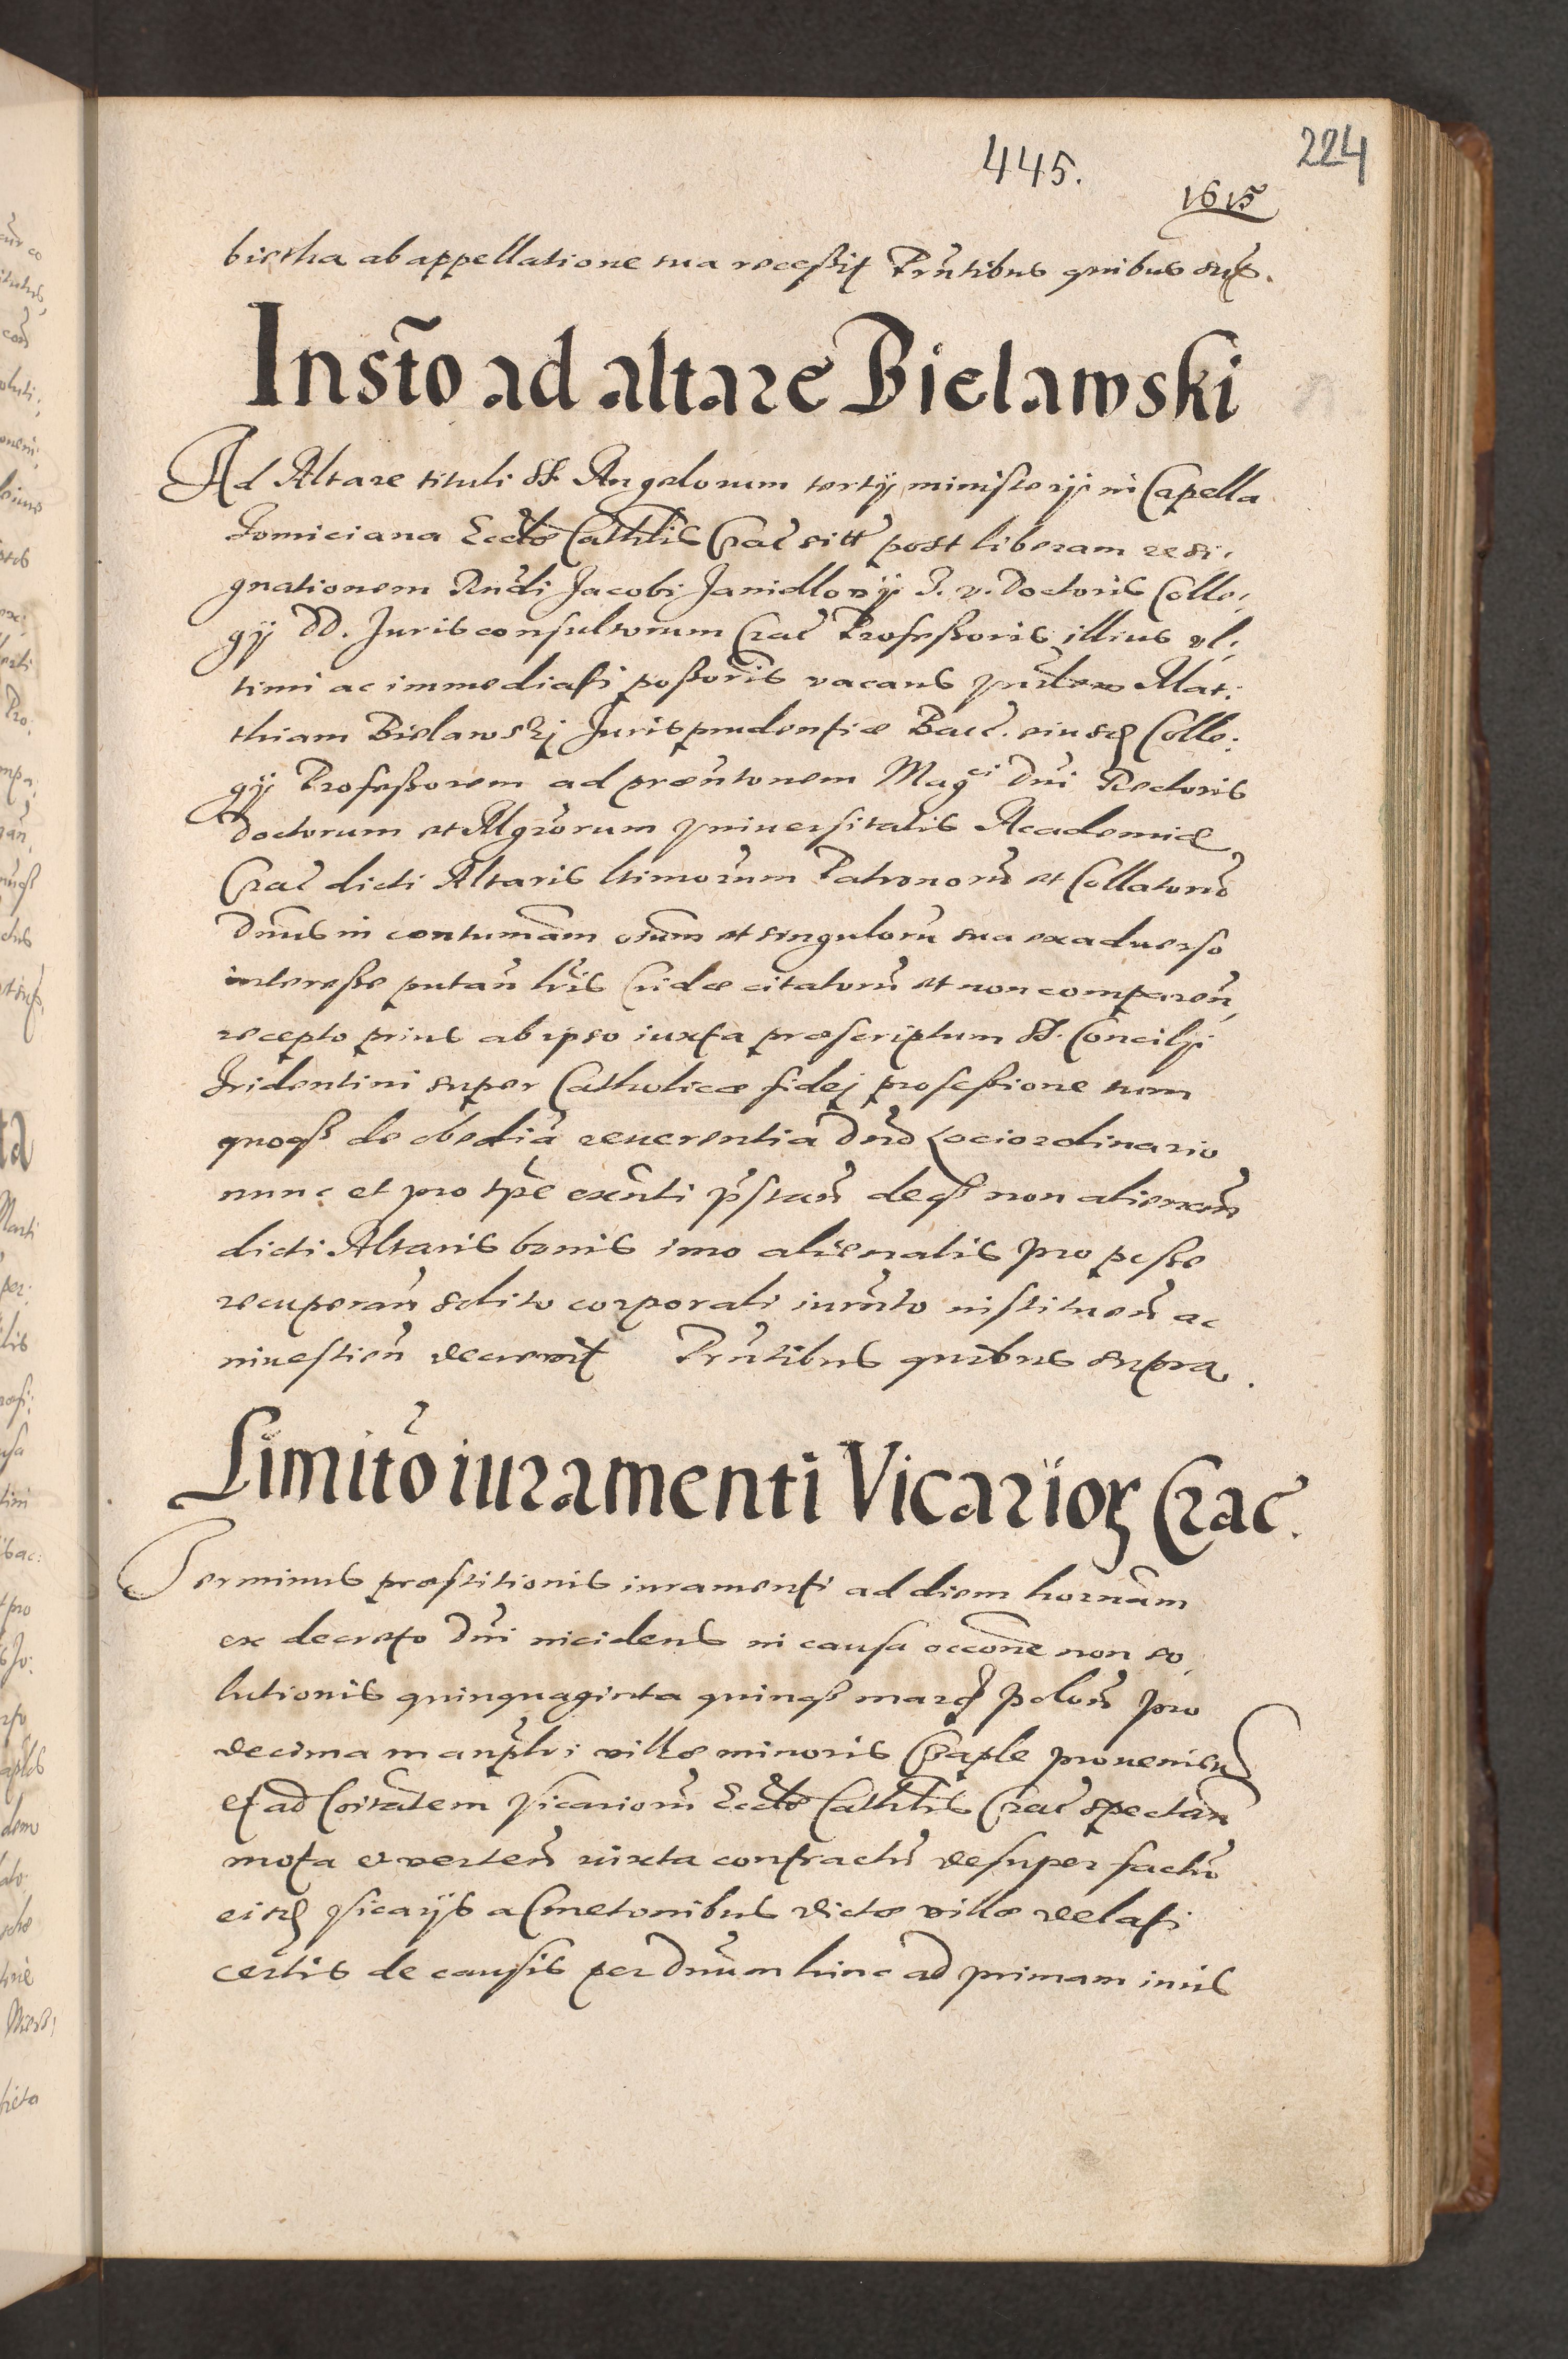 445.
224
1615
bietha ab appellatione sua recessit Pr̃ntibus quibus sup.
Instõ ad altare Bielawski
Ad Altare tituli SS. Angelorum tertij ministerij in Capella
Tomiciana Eccl̃æ Cathl̃is Crac̃ sitt post liberam resi,
gnationem Rñdi Jacobi Janidlovij J. V. Doctoris Colle,
gij DD. Jurisconsultorum Crac̃ Professoris illius vl,
timi ac immediati possoris vacans Mat:
thiam Bielawskj Jurisprudentiæ Bacc. eiusd Colle:
gij Professorem ad præñtonem Magci Dñi Rectoris
Doctorum et Mgrõrum Vniversitatis Academiæ
Crac̃ dicti Altaris ltimorum Patronorũ et Collatorũ
Dñus in contumam̃ oĩum et singulorũ sua exadverso
interesse putañ lr̃is Cridæ citatorũ et non compareñ
recepto prius ab ipso iuxta præscriptum SS. Concilij
Tridentini super Catholicæ fidej professione tum
quoq̃ de obediã reuerentia Dño Lociordinario
nunc et pro tp̃e exñti p̃stañ deq̃ non alienañ
dicti Altaris bonis imo alienatis pro posse
recuperañ solito corporali iurñto instituen̄ ac
investien̄ decrevit Pr̃ntibus quibus supra.
Limitõ iuramenti Vicarioꝝ Crac̃.
Terminus præstitionis iuramenti ad diem hornãm
ex decreto Dñi incidens in causa occõne non so,
lutionis quinquaginta quinq̃ marc̃ poloñ pro
decima manp̃li villæ minoris provenieñ
et ad Coitãtem Vicariorũ Eccl̃æ Cathl̃is Crac̃ spectañ
mota et verteñ iuxta contractũ desuper factũ
eisd Vicarijs a Cmetonibus dictæ villæ delati
certis de causis per Dñum hinc ad primam iuris